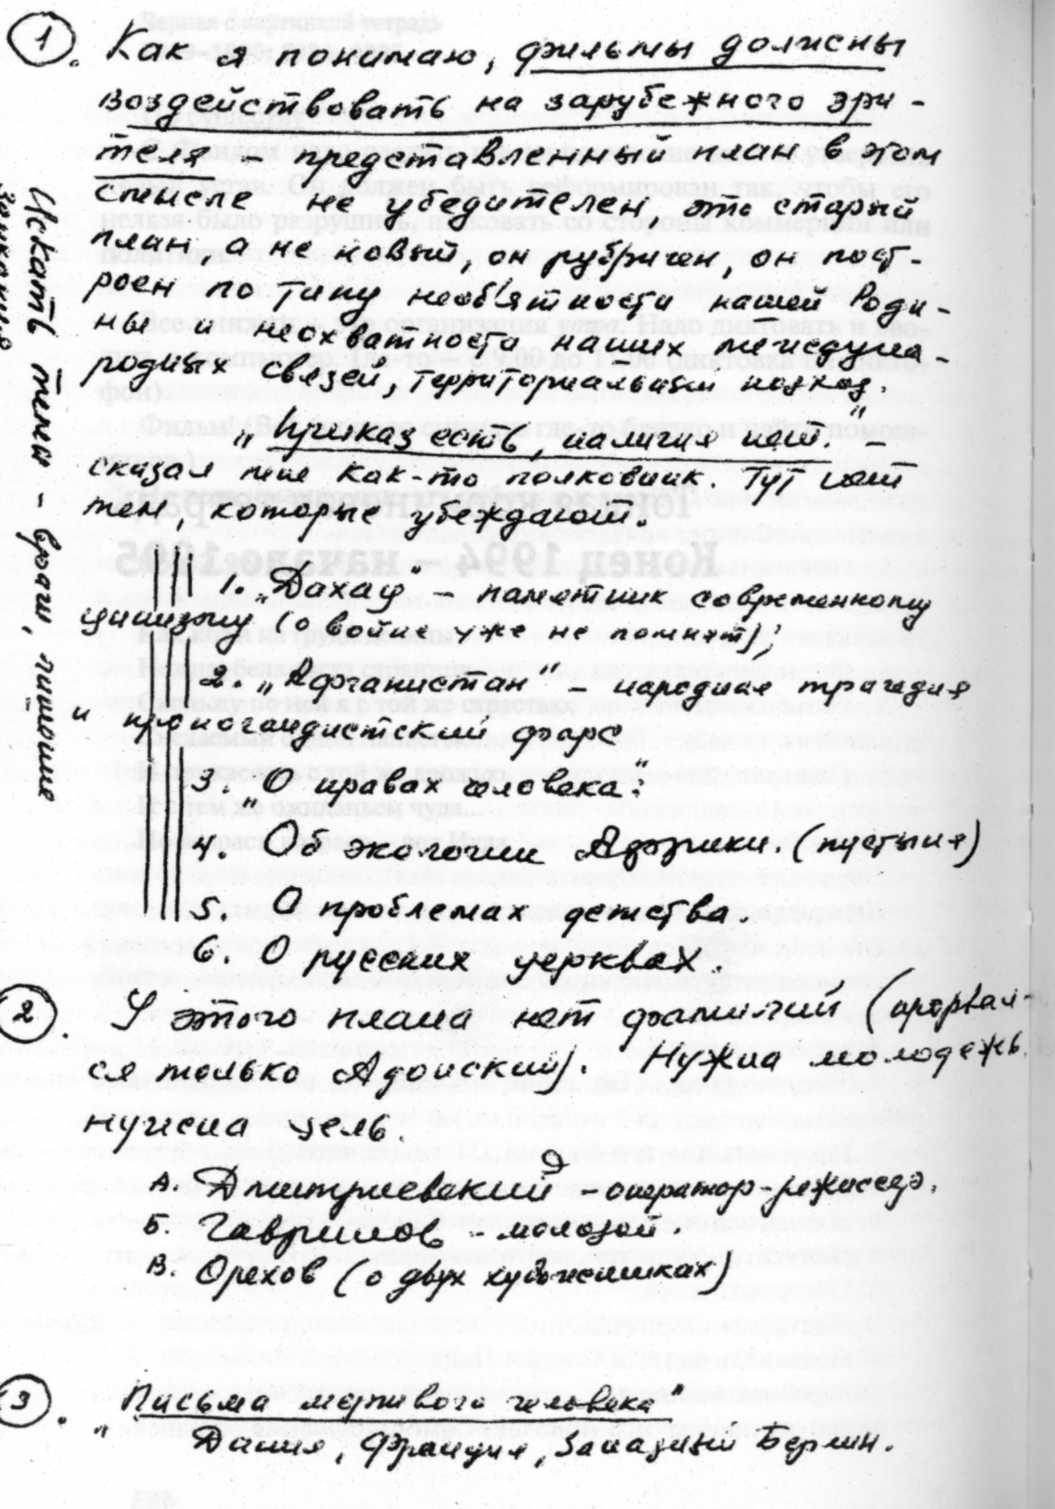 1. Как я понимаю, фильмы должны
воздействовать на зарубежного зри-
теля – представленный план в этом
смысле не убедителен, это старый
план, а не новый, он рубричен, он пост-
роен по типу необъятности нашей Роди-
ны и неохватности наших междуна-
родных связей, территориальный подход.
„Приказ есть, наличия нет" –
сказал мне как-то полковник. Тут нет
тем, которые убеждают.
1. „Дахау" – памятник современному
цинизму (о войне уже не помнят);
2. „Афганистан" – народная трагедия
и пропогандистский фарс
3. „О правах человека".
4. Об экологии Африки. (пустыня)
5. О проблемах детства.
6. О русских церквах.
2. У этого плана нет фамилий (прорвал-
ся только Адоиский). Нужна молодежь.
нужна цель.
А. Дмитриевский – оператор-режиссер.
Б. Гаврилов – молодой.
В. Орехов (о двух художниках)
3. „Письма мертвого человека"
Дания, Франция, Западный Берлин.
Искать темы – враги, пишоще